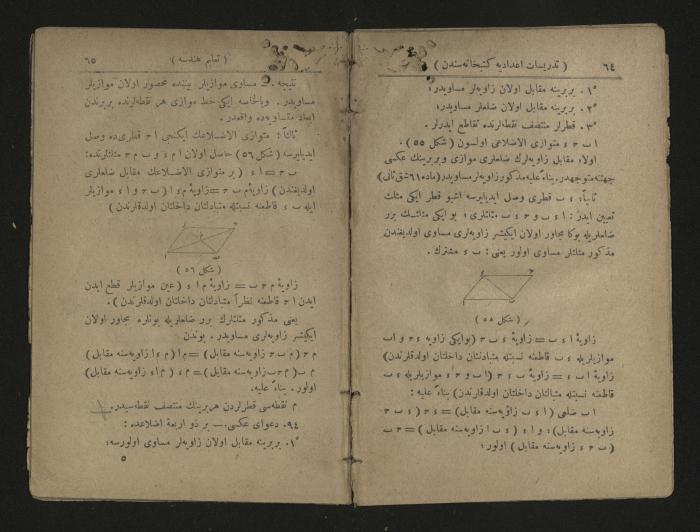 ٦٤
( تدریسات اعدادیه کتبخانه‌سندن )
١°. بربرینه مقابل اولان زاویه‌لر مساویدر؛
٢°. بربرینه مقابل اولان ضلعلر مساویدر؛
٣°. قطرلر منتصف نقطه‌لرنده تقاطع ایدرلر .
ا ب ح ء متوازی الاضلاعی اولسون ( شکل ٥٥ ) .
اولا، مقابل زاویه‌لرك ضلعلری موازی و بربرینك عکسی
جهتنه متوجهدر. بناءً علیه مذکور زاویه‌لر مساویدر (ماده ٦١ شق ثانی)
ثانیاً، ء ب قطری وصل ایدیلیرسه اشبو قطر ایکی مثلث
تعیین ایدر : ا ء ب و ح ء ب مثلثلری؛ بو ایکی مثلثك برر
ضلعلریله بوکا مجاور اولان ایکیشر زاویه‌لری مساوی اولدیغندن
مذکور مثلثلر مساوی اولور یعنی : ب ء مشترك .
( شکل ٥٥ )
زاویۀ ا ء ب = زاویۀ ء ب ح (بوایکی زاویه ء ح و اب
موازیلریله ء ب قاطعنه نسبتله متبادلتان داخلتان اولدقلرندن)
زاویۀ ا ب ء = زاویۀ ب ء ح (اب و ح ء موازیلریله ء ب
قاطعنه نسبتله متبادلتان داخلتان اولدقلرندن) بناءً علیه :
ا ب ضلعی (ا ء ب زاویه‌سنه مقابل) = ء ح (ء ب ح
زاویه‌سنه مقابل) : و ا ء (ء ب ا زاویه‌سنه مقابل) = ح ب
(ب ء ح زاویه‌سنه مقابل) اولور :
( تعلیم هندسه )
٦٥
نتیجه. — مساوی موازیلر بیننده محصور اولان موازیلر
مساویدر. وبالخاسه ایکی خط موازی هر نقطه‌لرنده بربرندن
ابعاد متساویه‌ده واقعدر.
ثالثاً: متوازی الاضلاعك ایکنجی ا ح قطری‌ده وصل
ایدیلیرسه (شکل ٥٦) حاصل اولان ا م ء و ب م ح مثلثلرنده:
ب ح = ا ء ( بر متوازی الاضلاعك مقابل ضلعلری
اولدیغندن) زاویۀ م ب ح = زاویۀ م ء ا (ب ح و ا ء موازیلر
ایله ب ء قاطعنه نسبتله متبادلتان داخلتان اولدقلرندن)
( شکل ٥٦ )
زاویۀ م ح ب = زاویۀ م ا ء (عین موازیلر قطع ایدن
ایدن ا ح قاطعنه نظراً متبادلتان داخلتان اولدقلرندن).
یعنی مذکور مثلثلرك برر ضلعلریله بونلره مجاور اولان
ایکیشر زاویه‌لری مساویدر. بوندن
م ح (م ب ح زاویه‌سنه مقابل) = م ا (م ء ا زاویه‌سنه مقابل)
م ب (م ح ب زاویه‌سنه مقابل) = م ء (م ا ء زاویه‌سنه مقابل)
اولور . بناءً علیه.
م نقطه‌سی قطرلردن هربرینك منتصف نقطه‌سیدر.
٩٤. دعوای عکسی. — بر ذو اربعة اضلاعده :
١°. بربرینه مقابل اولان زاویه‌لر مساوی اولورسه؛
٥